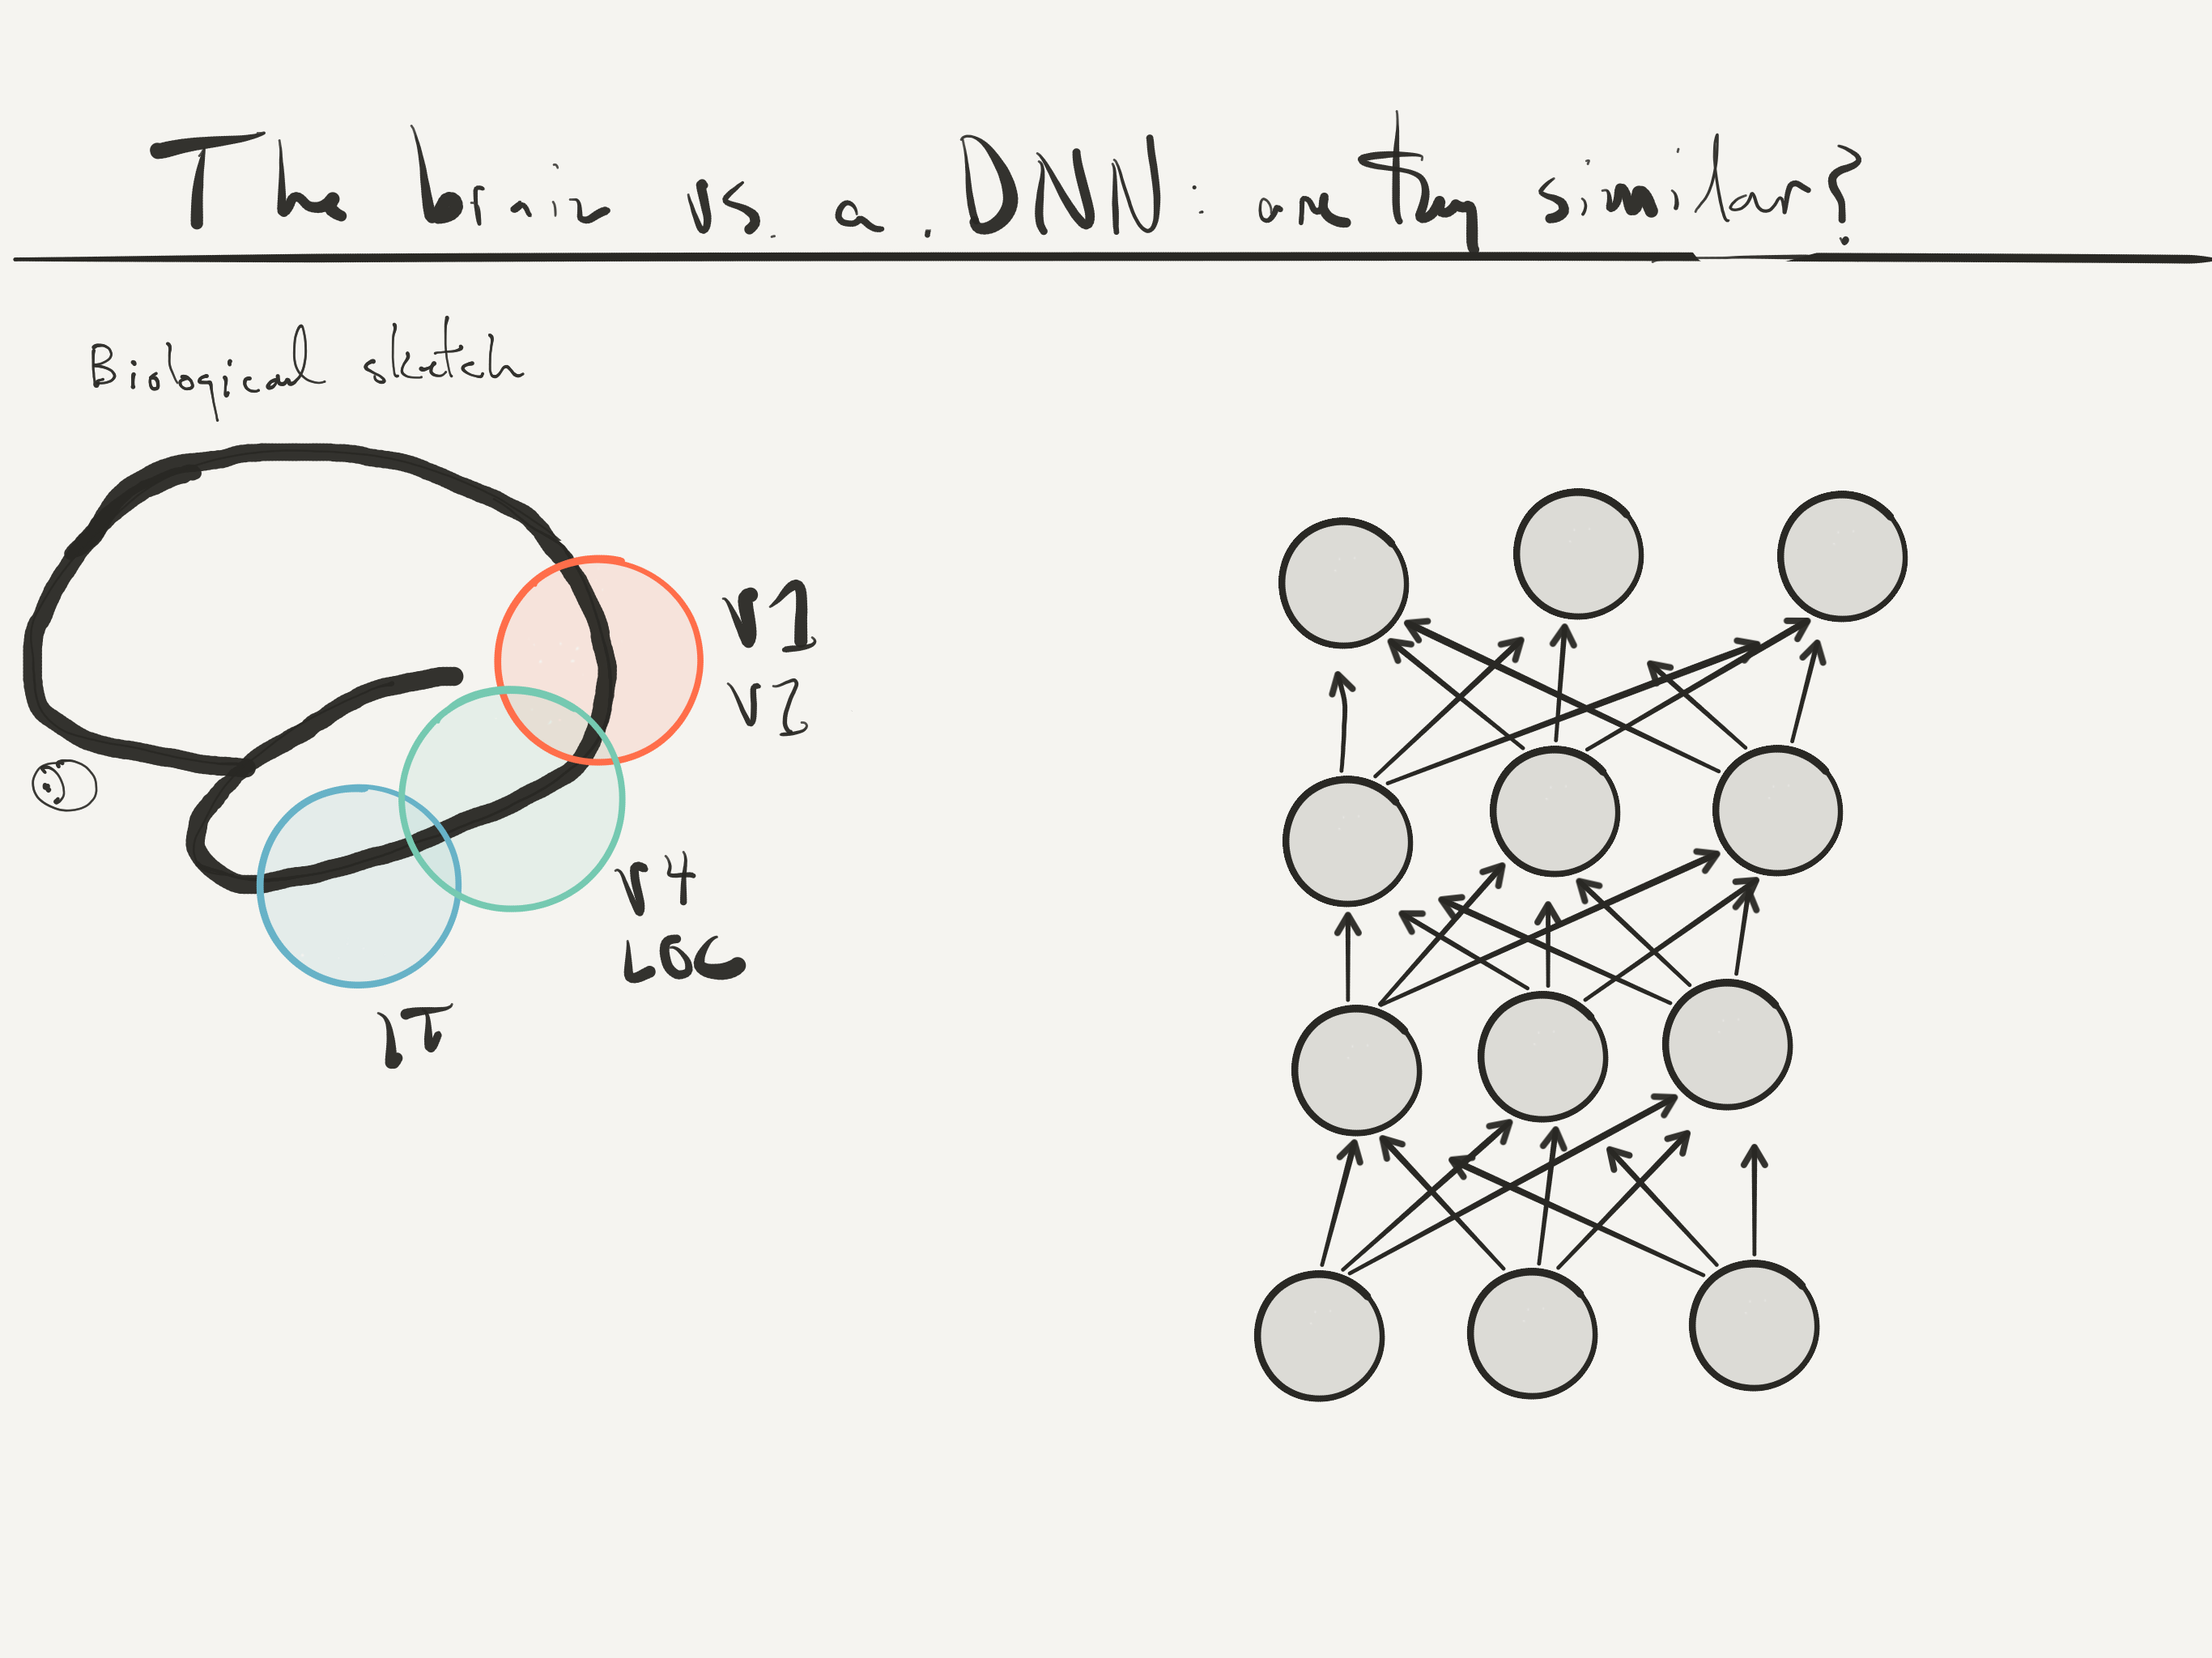 The brain vs. a DNN: are they similar?
Biological sketch
V1
V2
V4
LOC
IT